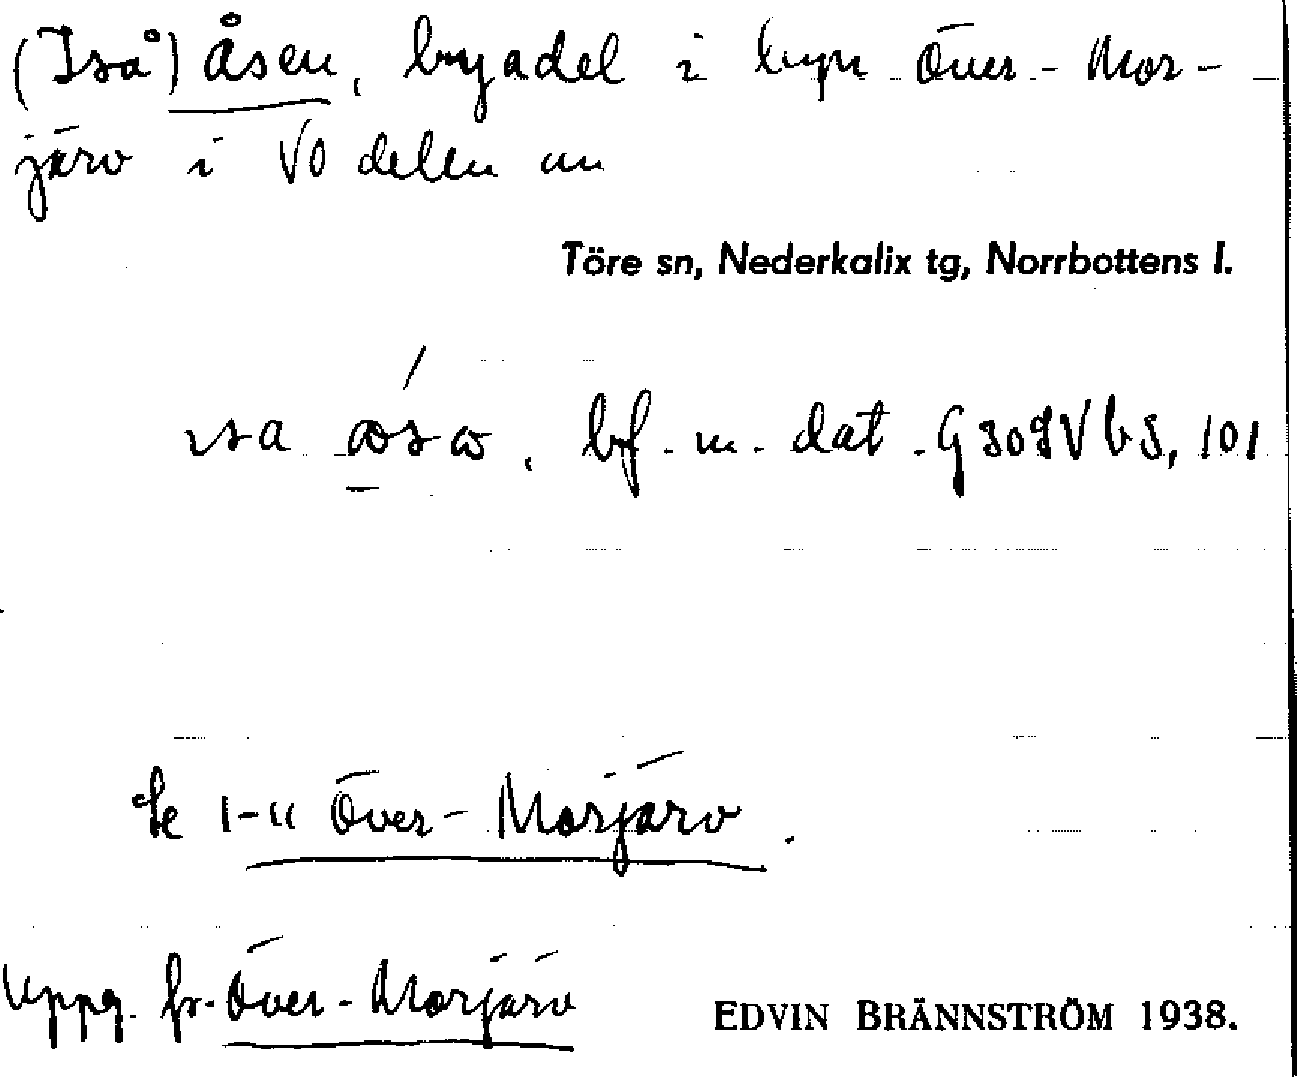 (Iså) åsen, byadel i byn Över-Mor-
järv i VO delen av
Töre sn, Nederkalix tg, Norrbottens l.
bf. m. dat.
Se 1-11 Över-Morjärv.
Uppg. fr. Över-Morjärv
EDVIN BRÄNNSTRÖM 1938.